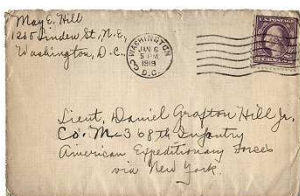 May E. Hill
1200 Linden St., N.E,
Washington, D.C.
WASHINGTON
JAN 6
5 PM
1919
D.C.
Lieut. Daniel Grafton Hill Jr.
Co. M-368th Infantry
American Expeditionary Forces
via New York.